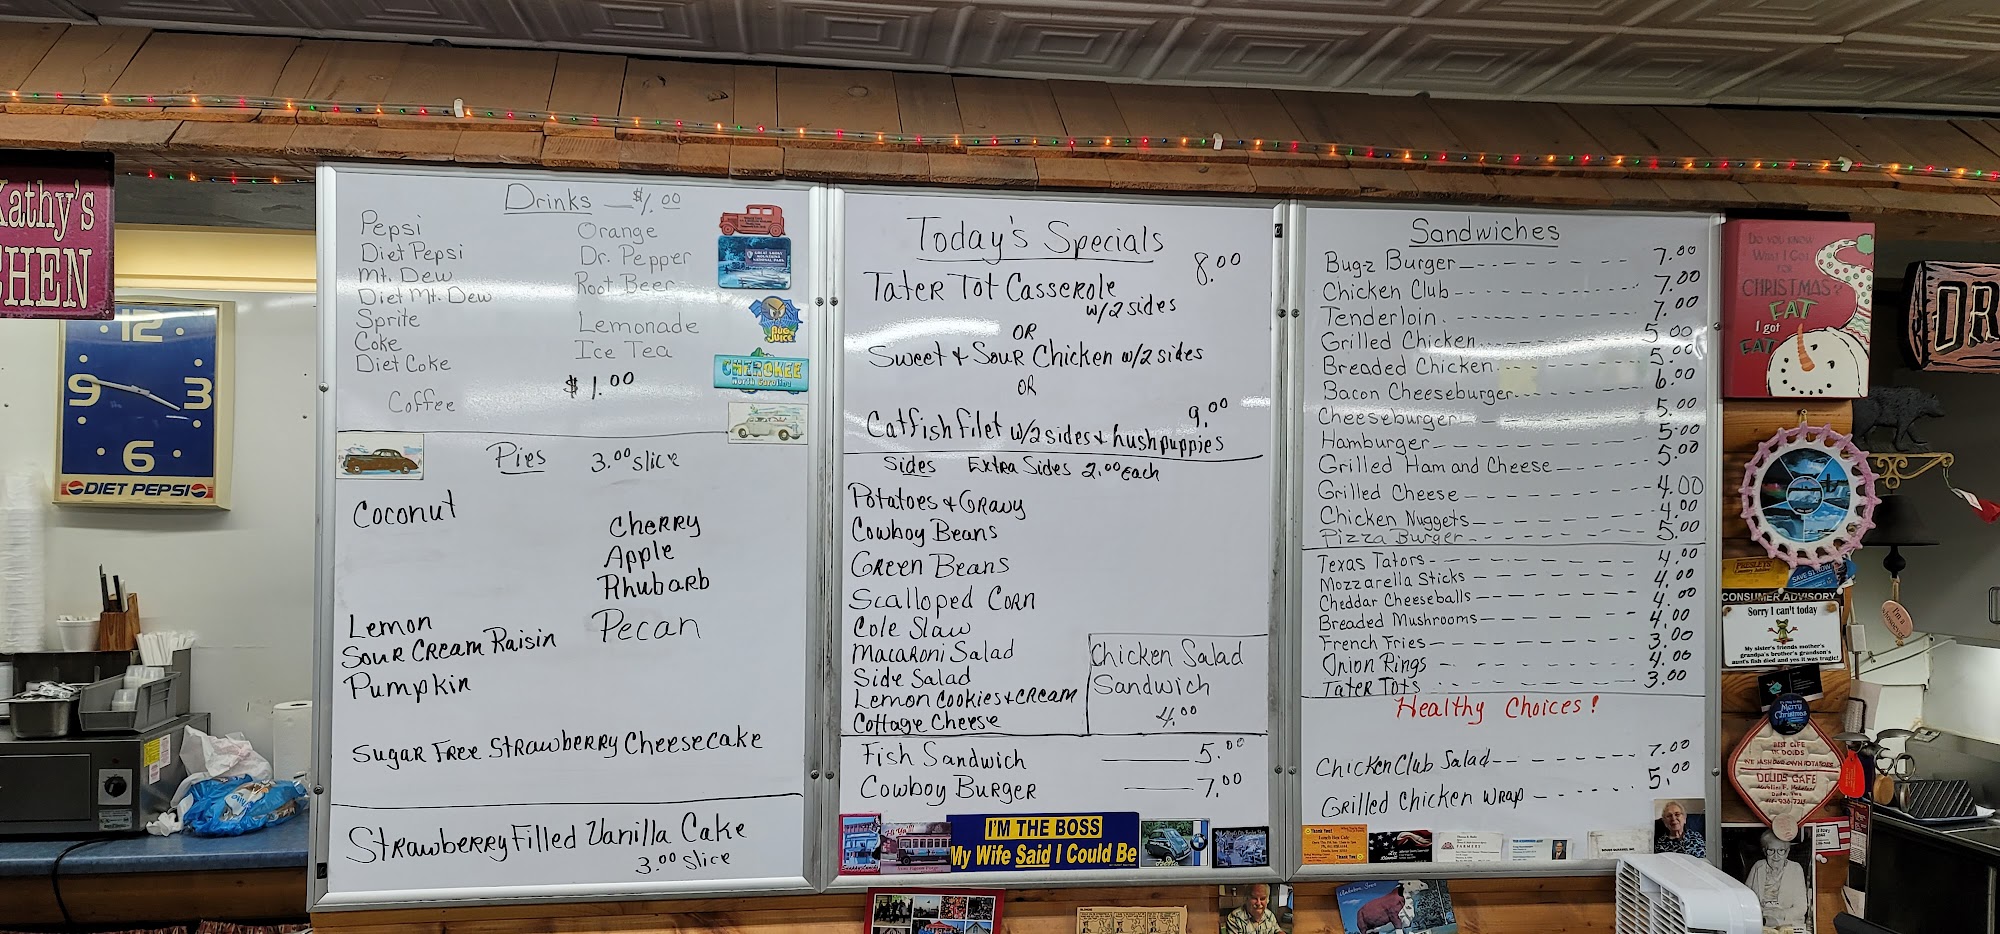 Kathy's
CHEN
12
9
3
6
DIET PEPSI
Drinks — $1.00
Pepsi
Diet Pepsi
Mt. Dew
Diet Mt. Dew
Sprite
Coke
Diet Coke
Coffee
Orange
Dr. Pepper
Root Beer
Lemonade
Ice Tea
$1.00
BUG JUICE
CHEROKEE
North Carolina
Pies 3.00 slice
Coconut
Cherry
Apple
Rhubarb
Lemon
Pecan
Sour Cream Raisin
Pumpkin
Sugar Free Strawberry Cheesecake
Strawberry Filled Vanilla Cake
3.00 slice
Today's Specials
Tater Tot Casserole 8.00
w/2 sides
OR
Sweet & Sour Chicken w/2 sides
OR
Catfish Filet w/2 sides & hushpuppies 9.00
Sides Extra Sides 2.00 each
Potatoes & Gravy
Cowboy Beans
Green Beans
Scalloped Corn
Cole Slaw
Macaroni Salad
Side Salad
Lemon Cookies & Cream
Cottage Cheese
Chicken Salad
Sandwich
4.00
Fish Sandwich — 5.00
Cowboy Burger — 7.00
I'M THE BOSS
My Wife Said I Could Be
Sandwiches
Bugz Burger 7.00
Chicken Club 7.00
Tenderloin 7.00
Grilled Chicken 5.00
Breaded Chicken 5.00
Bacon Cheeseburger 6.00
Cheeseburger 5.00
Hamburger 5.00
Grilled Ham and Cheese 5.00
Grilled Cheese 4.00
Chicken Nuggets 4.00
Pizza Burger 5.00
Texas Tators 4.00
Mozzarella Sticks 4.00
Cheddar Cheeseballs 4.00
Breaded Mushrooms 4.00
French Fries 3.00
Onion Rings 4.00
Tater Tots 3.00
Healthy Choices!
Chicken Club Salad 7.00
Grilled Chicken Wrap 5.00
DO YOU KNOW
WHAT I GOT
FOR
CHRISTMAS?
FAT
I got
FAT
DR
CONSUMER ADVISORY
Sorry I can't today
My sister's friends mother's
grandpa's brother's grandson's
aunt's fish died and yes it was tragic!
Merry
Christmas
DOUDS CAFE